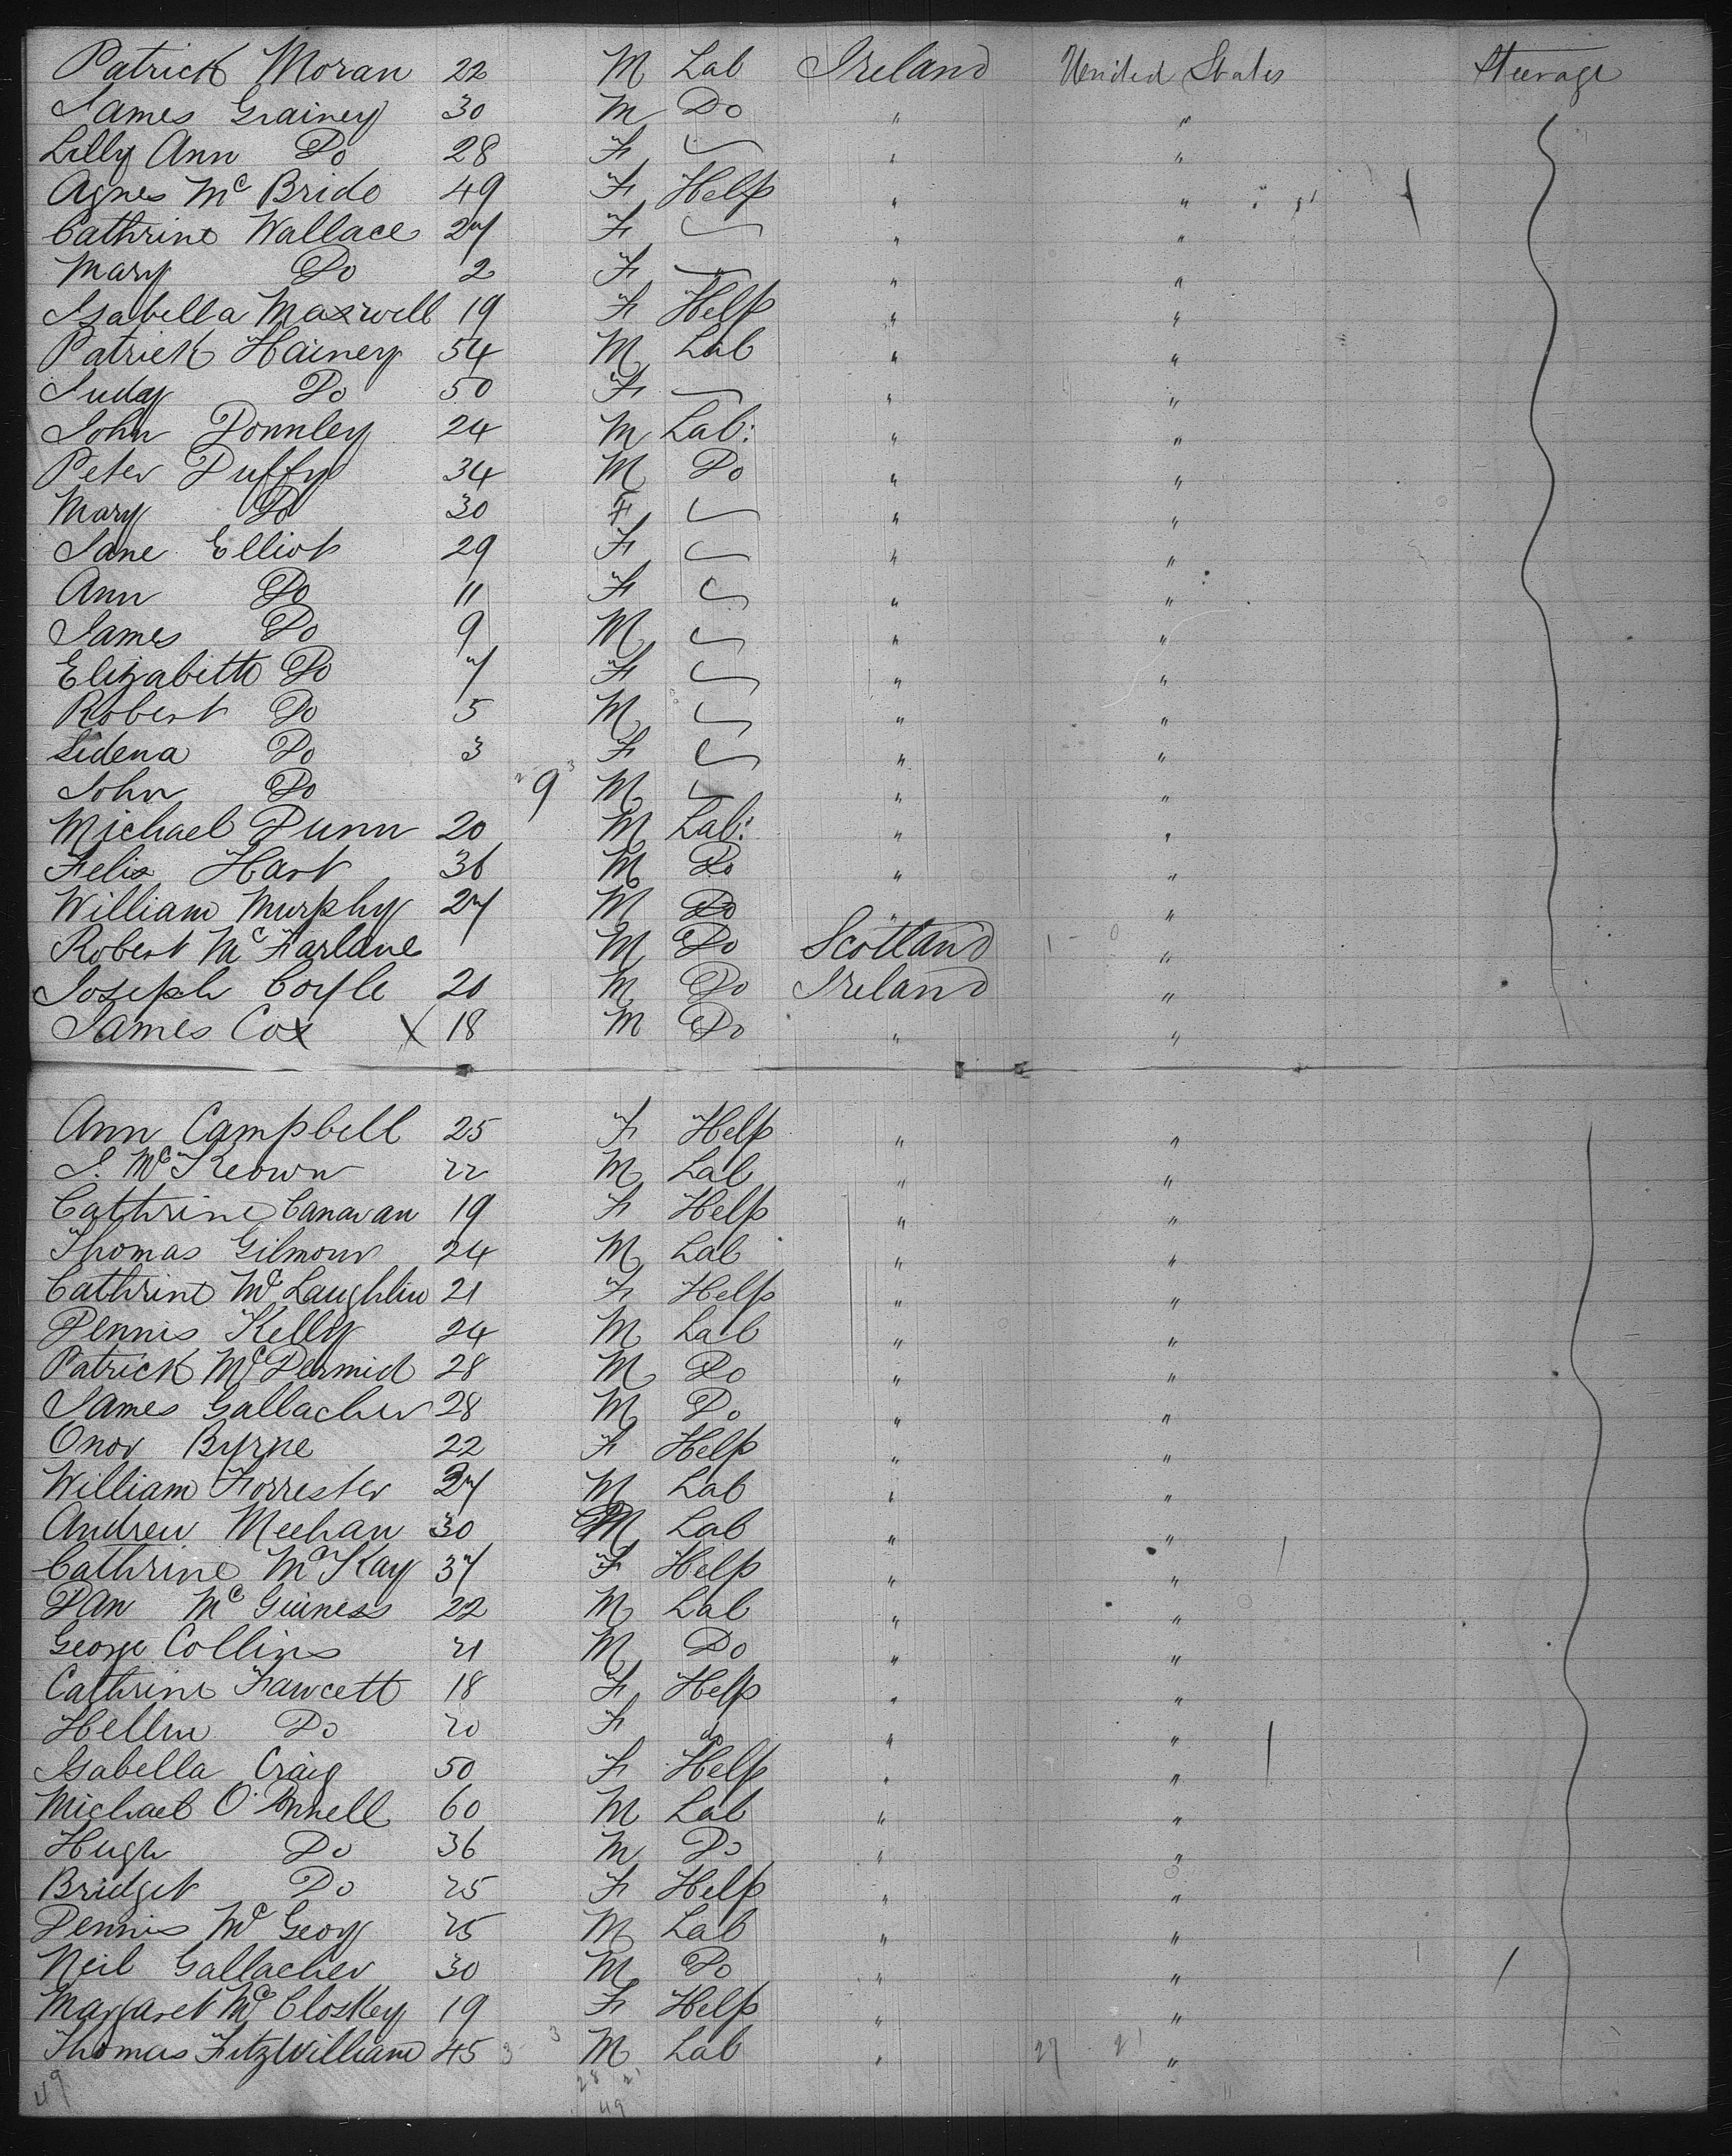 Patrick Moran 22 M Lab Ireland United States Steerage
James Grainey 30 M Do " "
Lilly Ann Do 28 F " "
Agnes Mc Bride 49 F Help " "
Cathrine Wallace 27 F " "
Mary Do 2 F " "
Isabella Maxwell 19 F Help " "
Patrick Hainey 54 M Lab " "
Judy Do 50 F " "
John Donnley 24 M Lab: " "
Peter Duffy 34 M Do " "
Mary Do 30 F " "
Jane Elliot 29 F " "
Ann Do 11 F " "
James Do 9 M " "
Elizabith Do 7 F " "
Robert Do 5 M " "
Lidena Do 3 F " "
John Do 9 M " "
Michael Dunn 20 M Lab: " "
Felix Hart 36 M Do " "
William Murphy 27 M Do " "
Robert Mc Farlane M Do Scotland "
Joseph Coyle 20 M Do Ireland "
James Cox X 18 M Do " "
Ann Campbell 25 F Help " "
J. Mc Keown 22 M Lab " "
Cathrine Canavan 19 F Help " "
Thomas Gilmour 24 M Lab " "
Cathrine Mc Laughlin 21 F Help " "
Dennis Kelly 24 M Lab " "
Patrick Mc Dermid 28 M Do " "
James Gallacher 28 M Do " "
Onor Byrne 22 F Help " "
William Forrester 27 M Lab " "
Andrew Meehan 30 M Lab " "
Cathrine Mc Kay 37 F Help " "
Dan Mc Guiness 22 M Lab " "
George Collins 21 M Do " "
Cathrine Fawcett 18 F Help " "
Hellen Do 20 F do " "
Isabella Craig 50 F Help " "
Michael O'Donnell 60 M Lab " "
Hugh Do 36 M Do " "
Bridget Do 25 F Help " "
Dennis Mc Geoy 25 M Lab " "
Neil Gallacher 30 M Do " "
Margaret Mc Closkey 19 F Help " "
Thomas FitzWilliam 45 M Lab 27 21 " "
49 28 21
49